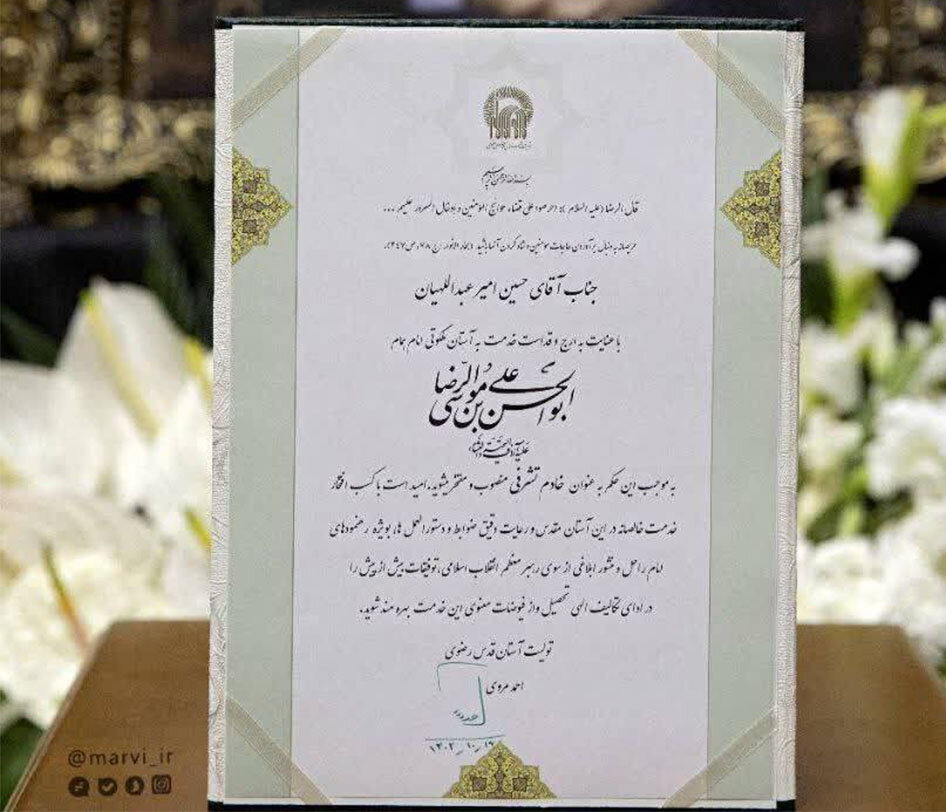 بسم الله الرحمن الرحیم
قال الرضا (علیه السلام): احرصوا علی قضاء حوائج المؤمنین و ادخال السرور علیهم ...
حریصانه به دنبال برآوردن حاجات مؤمنین و شاد کردن آنها باشید (بحار الانوار ج ۷۸، ص ۳۴۷).
جناب آقای حسین امیر عبداللهیان
با عنایت به ارج و قداست خدمت به آستان ملکوتی امام همام
ابوالحسن علی بن موسی الرضا
علیه آلاف التحیة والثناء
به موجب این حکم به عنوان خادم تشرفی منصوب و مفتخر میشوید. امید است با کسب افتخار
خدمت خالصانه در این آستان مقدس و رعایت دقیق ضوابط و دستورالعمل ها، بویژه رهنمودهای
امام راحل و منشور ابلاغی از سوی رهبر معظم انقلاب اسلامی، توفیقات بیش از پیش را
در ادای تکالیف الهی تحصیل و از فیوضات معنوی این خدمت بهره مند شوید.
تولیت آستان قدس رضوی
احمد مروی
۱۴۰۲/۱۰/۱۹
@marvi_ir